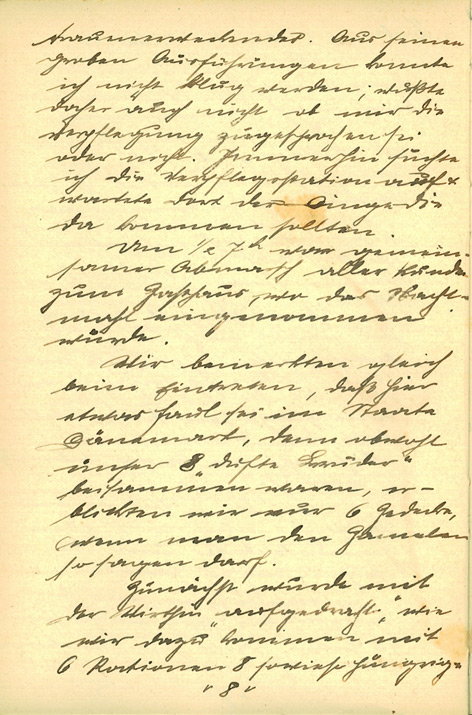 trauenerweckendes. Aus seinen
großen Ausführungen konnte
ich nicht klug werden; wußte
daher auch nicht ob mir die
Verpflegung zugesprochen sei
oder nicht. Immerhin suchte
ich die Verpflegsstation auf &
wartete dort der Dinge die
da kommen sollten.
Um ½ 7 h war gemein-
samer Abmarsch aller Kunden
zum Gasthaus, wo das Nacht-
mahl eingenommen
wurde.
Wir bemerkten gleich
beim Eintreten, daß hier
etwas faul sei im Staate
Dänemark, denn obwohl
unser 8 „dufte Kunden"
beisammen waren, er-
blickten wir nur 6 Gedecke,
wenn man den Gamelen
so sagen darf.
Zunächst wurde mit
der Wirthin aufgedraht, „wie
wir dazu" kommen mit
6 Rationen 8 sowieso hungrige
"8"